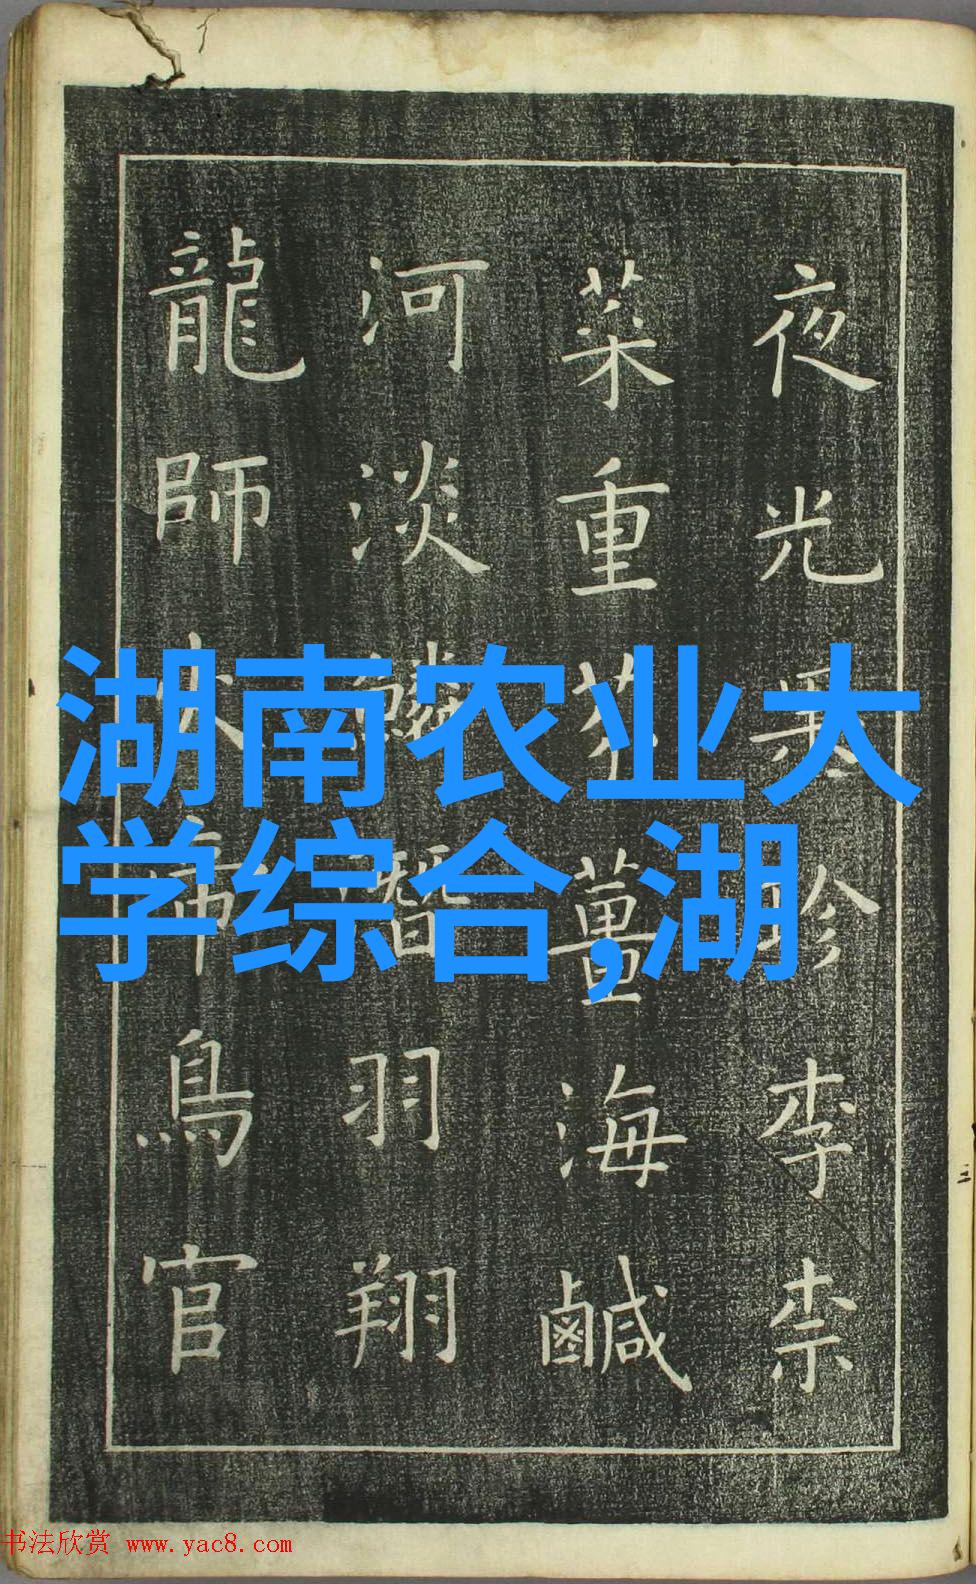 夜光果珍李柰
菜重芥薑海鹹
河淡鱗潛羽翔
龍師火帝鳥官
湖南农业大
学综合,湖
书法欣赏 www.yac8.com